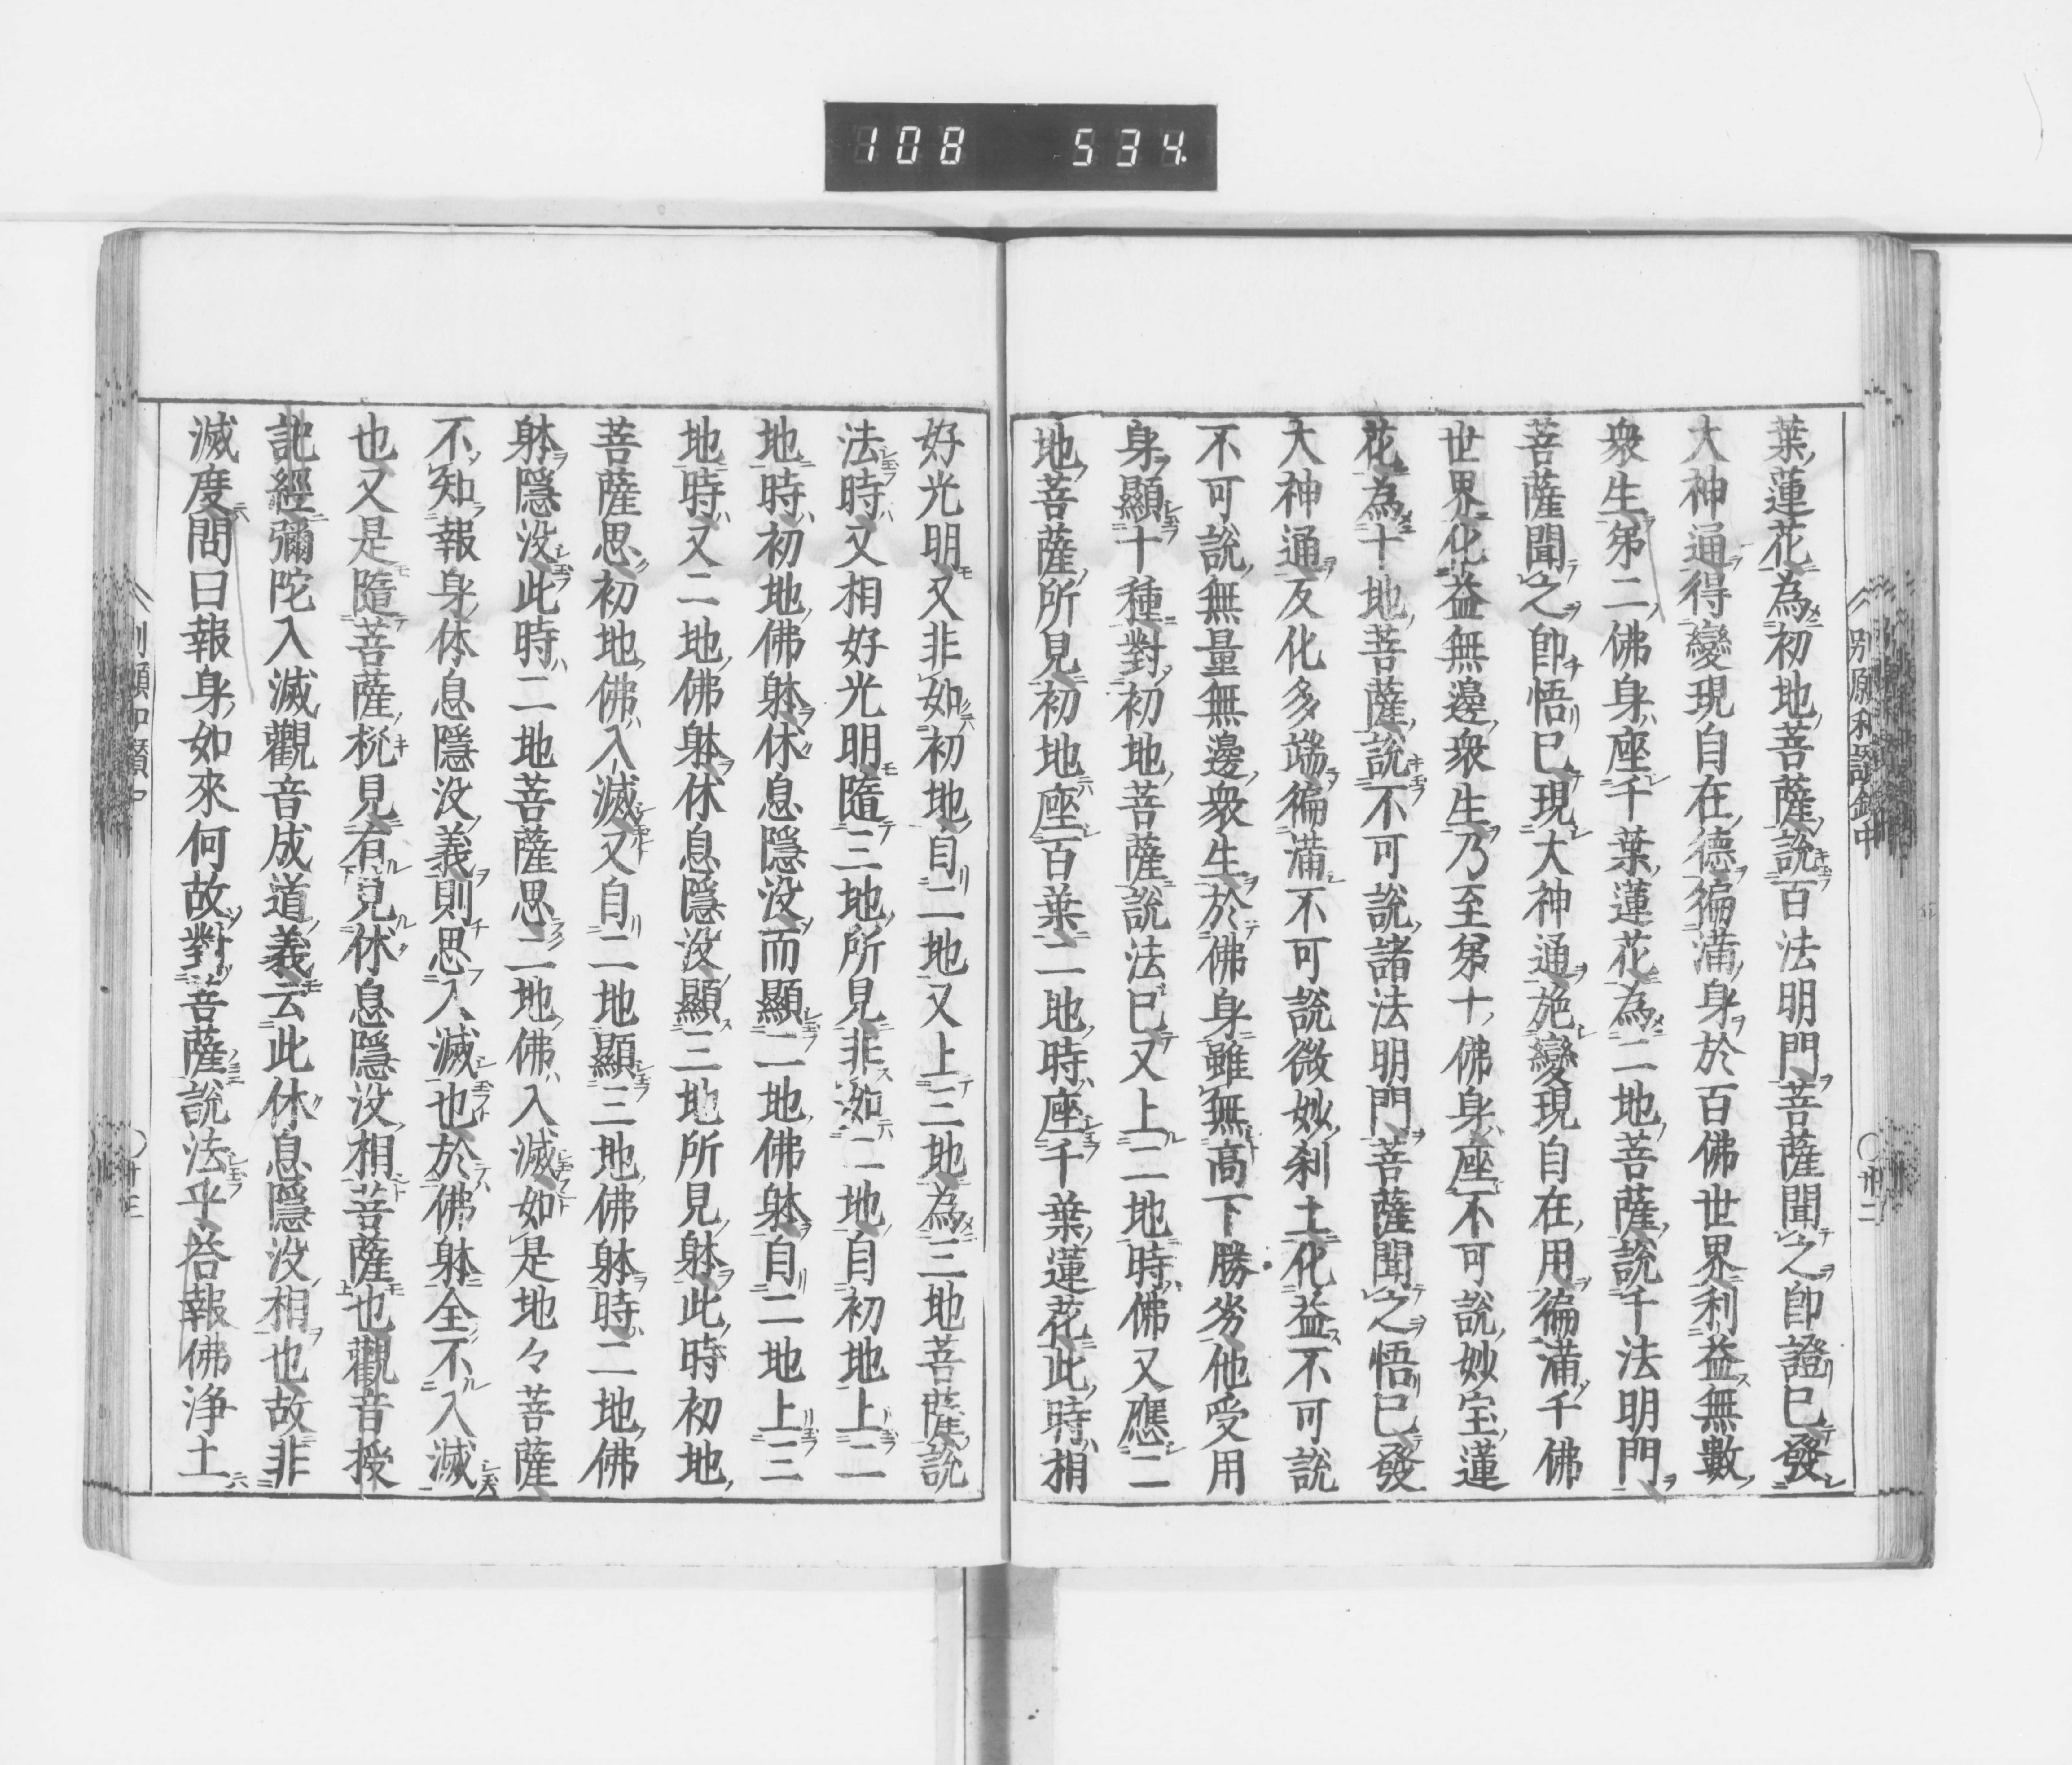 108 534
別願和讃鈔中
〇卅二
葉蓮花為初地菩薩說百法明門菩薩聞之卽證已發
大神通得變現自在德徧滿身於百佛世界利益無數
衆生第二佛身座千葉蓮花為二地菩薩說千法明門
菩薩聞之卽悟已現大神通施變現自在用徧滿千佛
世界化益無邊衆生乃至第十佛身座不可說妙宝蓮
花為十地菩薩說不可說諸法明門菩薩聞之悟已發
大神通反化多端徧滿不可說微妙刹土化益不可說
不可說無量無邊衆生於佛身雖無高下勝劣他受用
身顯十種對初地菩薩說法已又上二地時佛又應二
地菩薩所見初地座百葉二地時座千葉蓮花此時相
好光明又非如初地自二地又上三地為三地菩薩說
法時又相好光明隨三地所見非如二地自初地上二
地時初地佛躰休息隱没而顯二地佛躰自二地上三
地時又二地佛躰休息隱没顯三地所見躰此時初地
菩薩思初地佛入滅又自二地顯三地佛躰時二地佛
躰隱没此時二地菩薩思二地佛入滅如是地々菩薩
不知報身休息隱没義則思入滅也於佛躰全不入滅
也又是隨菩薩机見有見休息隱没相菩薩也觀音授
記經彌陀入滅觀音成道義云此休息隱没相也故非
滅度問曰報身如來何故對菩薩說法乎答報佛浄土
〇卅三